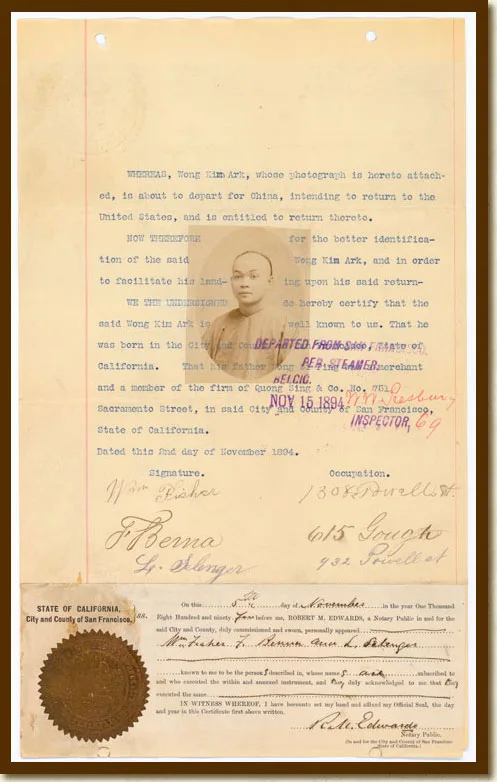 WHEREAS, Wong Kim Ark, whose photograph is hereto attach-
ed, is about to depart for China, intending to return to the
United States, and is entitled to return thereto.
NOW THEREFORE for the better identifica-
tion of the said Wong Kim Ark, and in order
to facilitate his land- ing upon his said return-
WE THE UNDERSIGNED do hereby certify that the
said Wong Kim Ark is well known to us. That he
was born in the City and State of
DEPARTED FROM SAN FRANCISCO,
California. That his father merchant
PER STEAMER,
BELGIC,
and a member of the firm of Quong Sing & Co. No. 751
NOV 15 1894
Sacramento Street, in said City and County of San Francisco,
INSPECTOR, 69
State of California.
Dated this 2nd day of November 1894.
Signature. Occupation.
Wm Fisher 1308 Powell St.
F Berna 615 Gough
L. Selenger 932 Powell st
STATE OF CALIFORNIA,
City and County of San Francisco, } ss.
On this 5th day of November in the year One Thousand
Eight Hundred and ninety four before me, ROBERT M. EDWARDS, a Notary Public in and for the
said City and County, duly commissioned and sworn, personally appeared
Wm Fisher F. Berna and L. Selenger
known to me to be the persons described in, whose names are subscribed to
and who executed the within and annexed instrument, and they duly acknowledged to me that they
executed the same
IN WITNESS WHEREOF, I have hereunto set my hand and affixed my Official Seal, the day
and year in this Certificate first above written.
R. M. Edwards
Notary Public.
(In and for the City and County of San Francisco
State of California.)